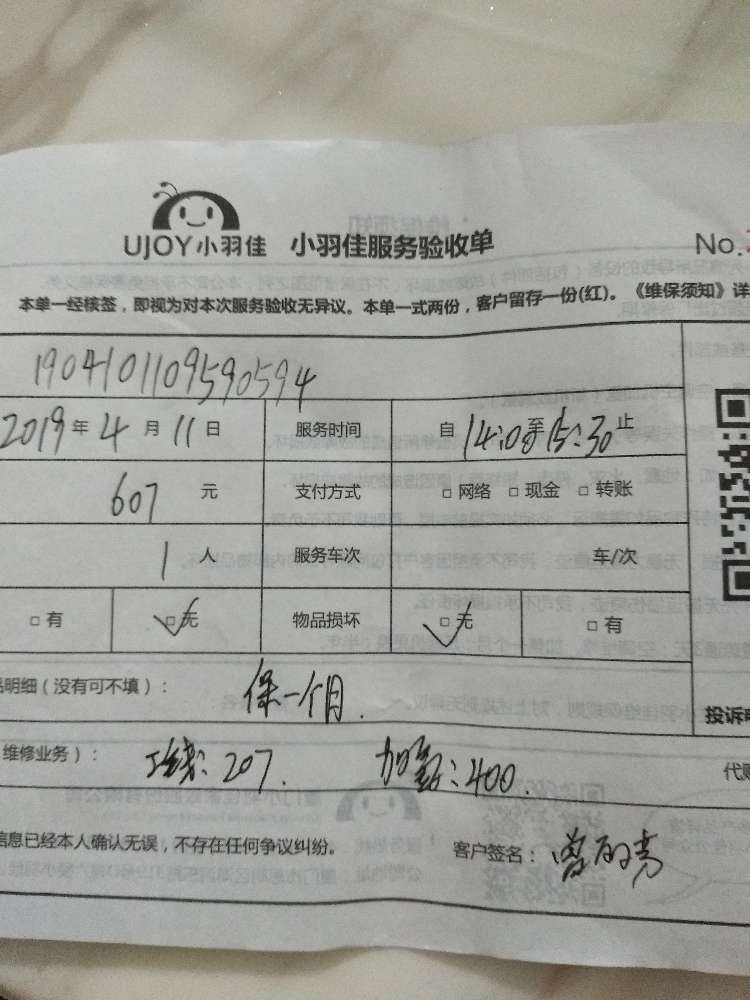 UJOY小羽佳 小羽佳服务验收单 No.
本单一经核签，即视为对本次服务验收无异议。本单一式两份，客户留存一份(红)。《维保须知》详
1904101109590594
2019年4月11日 服务时间 自14:00至15:30止
607元 支付方式 □网络 □现金 □转账
1人 服务车次 车/次
□有 □无 物品损坏 □无 □有
明细（没有可不填）： 保一个月.
投诉
维修业务）： 207. 加氟:400. 代购
信息已经本人确认无误，不存在任何争议纠纷。 客户签名：